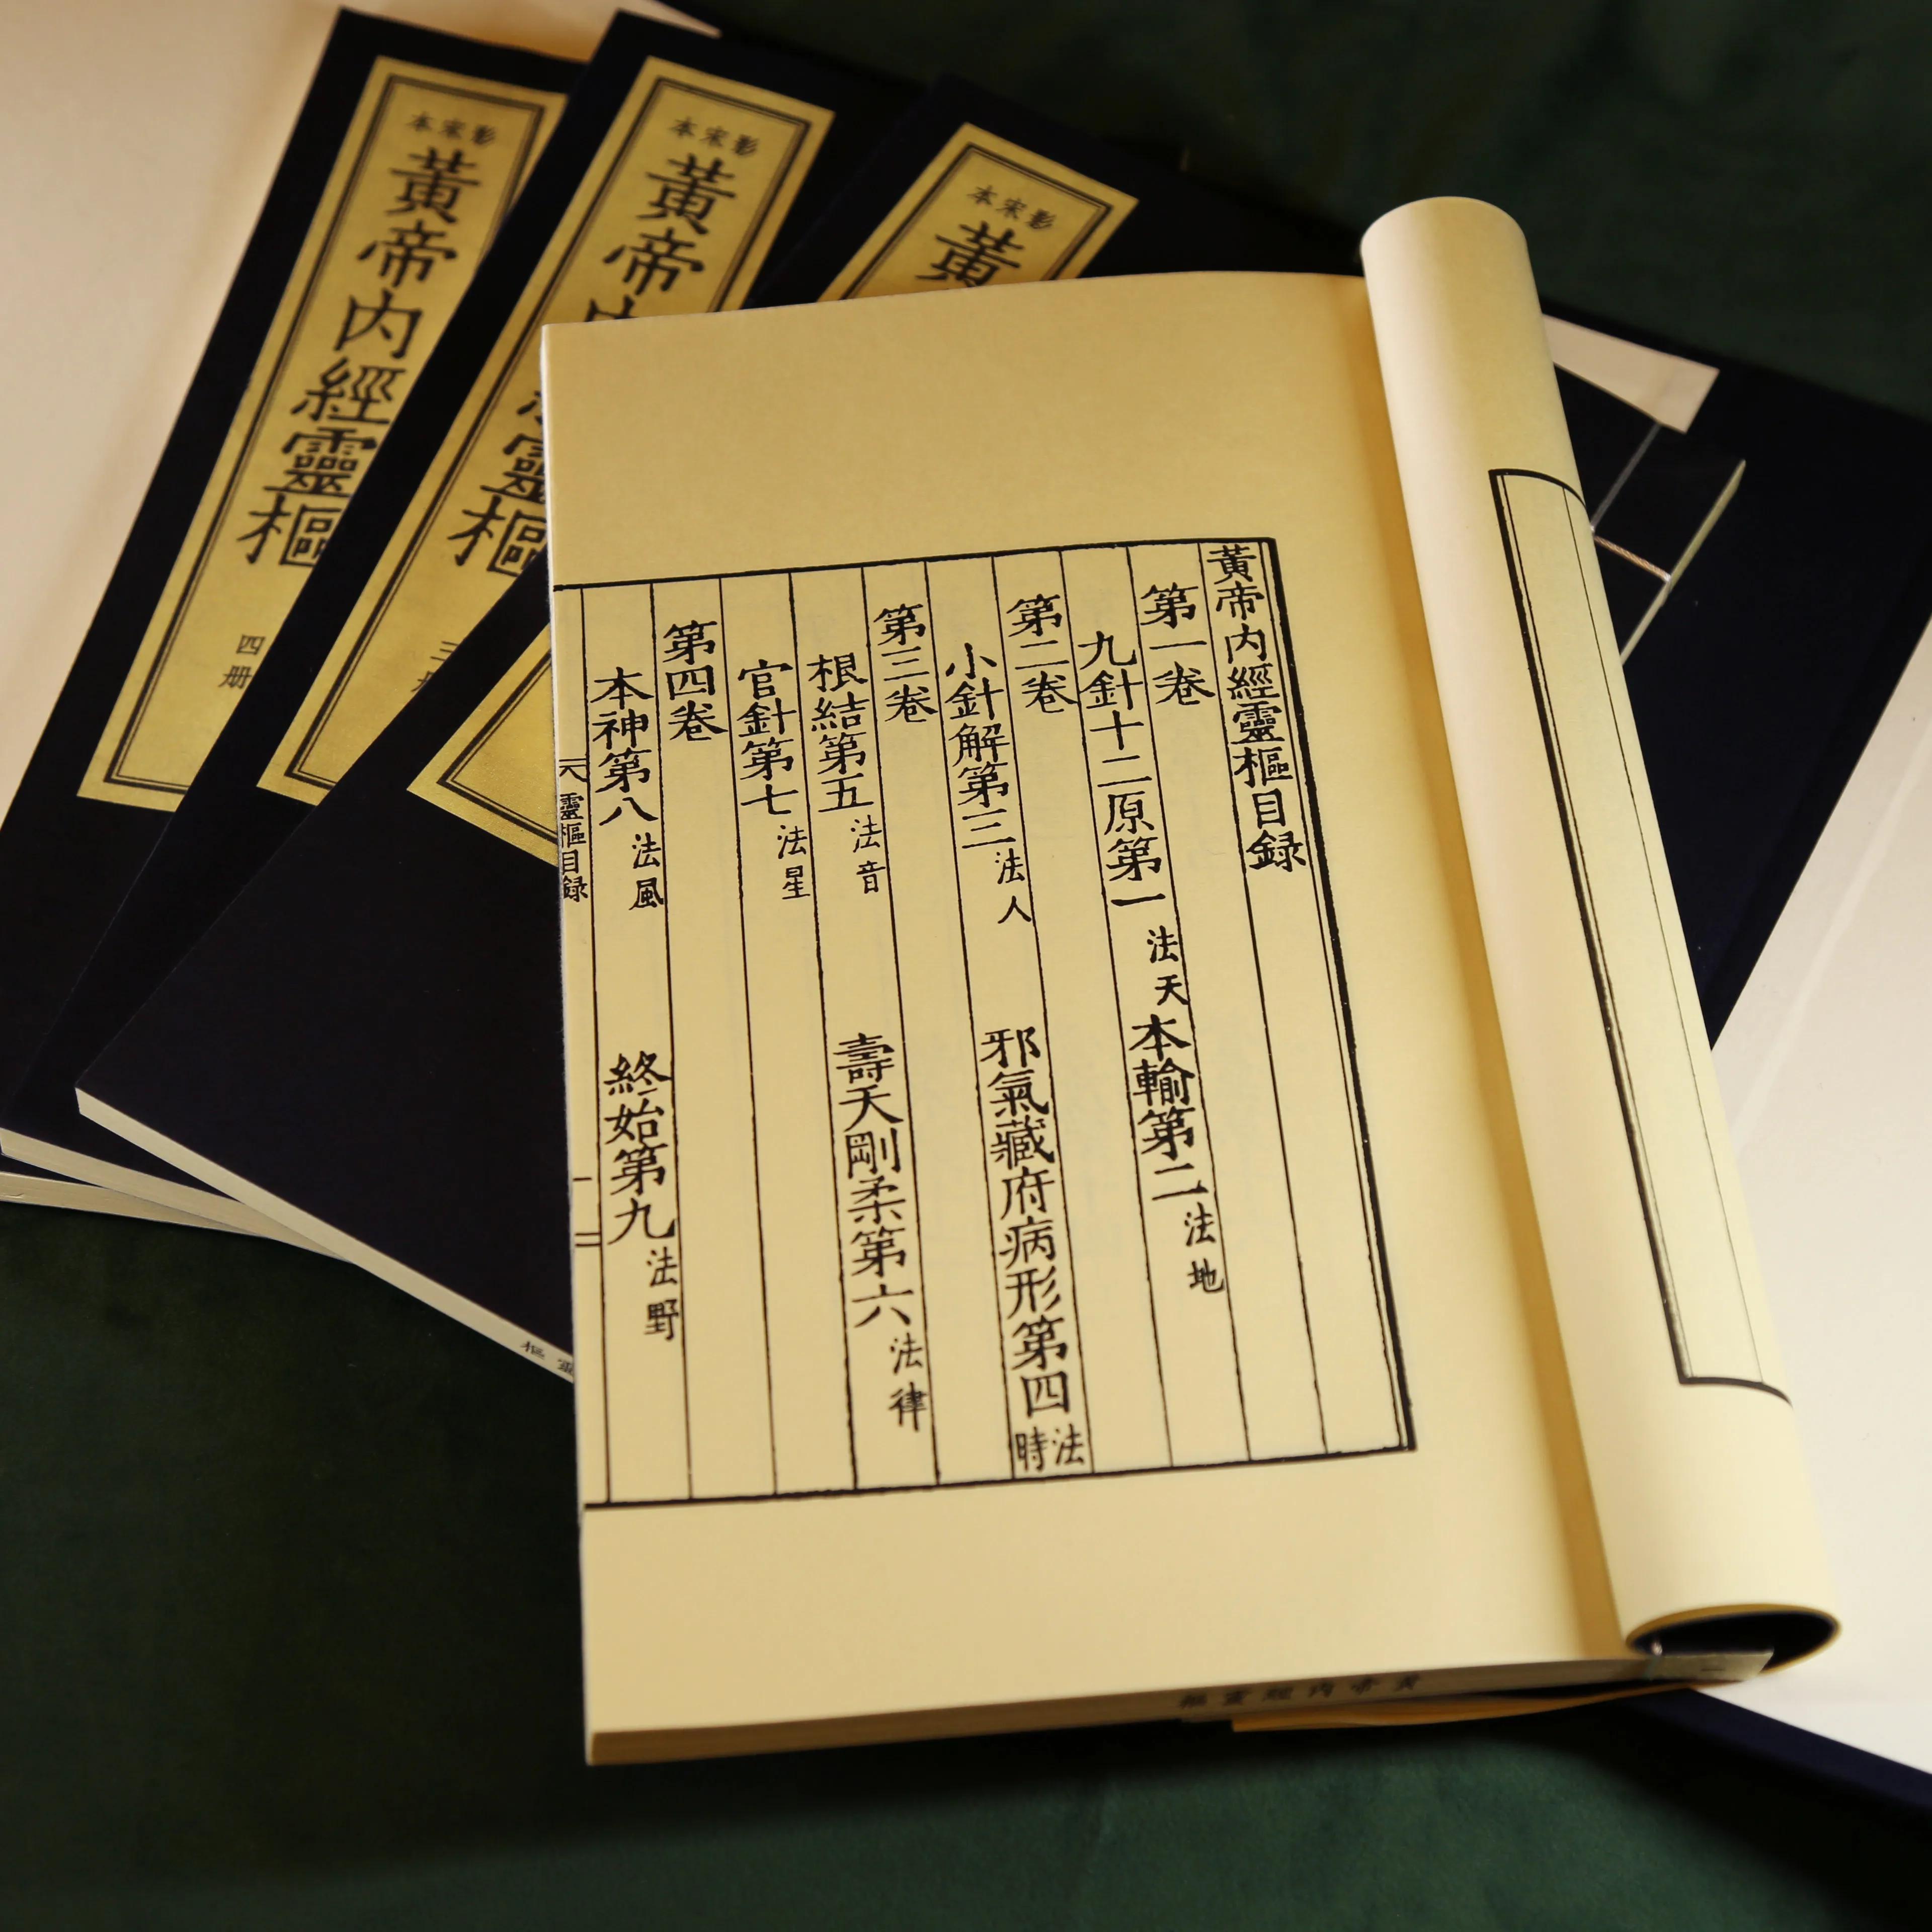 黃帝內經靈樞目録
第一卷
九針十二原第一 法天 本輸第二 法地
第二卷
小針解第三 法人 邪氣藏府病形第四 法時
第三卷
根結第五 法音 壽夭剛柔第六 法律
官針第七 法星
第四卷
本神第八 法風 終始第九 法野
靈樞目録
影宋本
黃
影宋本
黃帝內
靈樞
三
影宋本
黃帝內經靈樞
四册
黃帝內經靈樞
一
靈樞